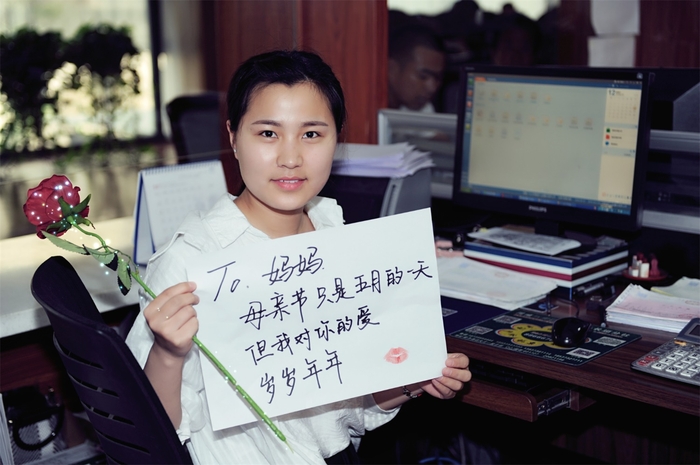 To. 妈妈.
母亲节只是五月的一天
但我对你的爱
岁岁年年
PHILIPS
12